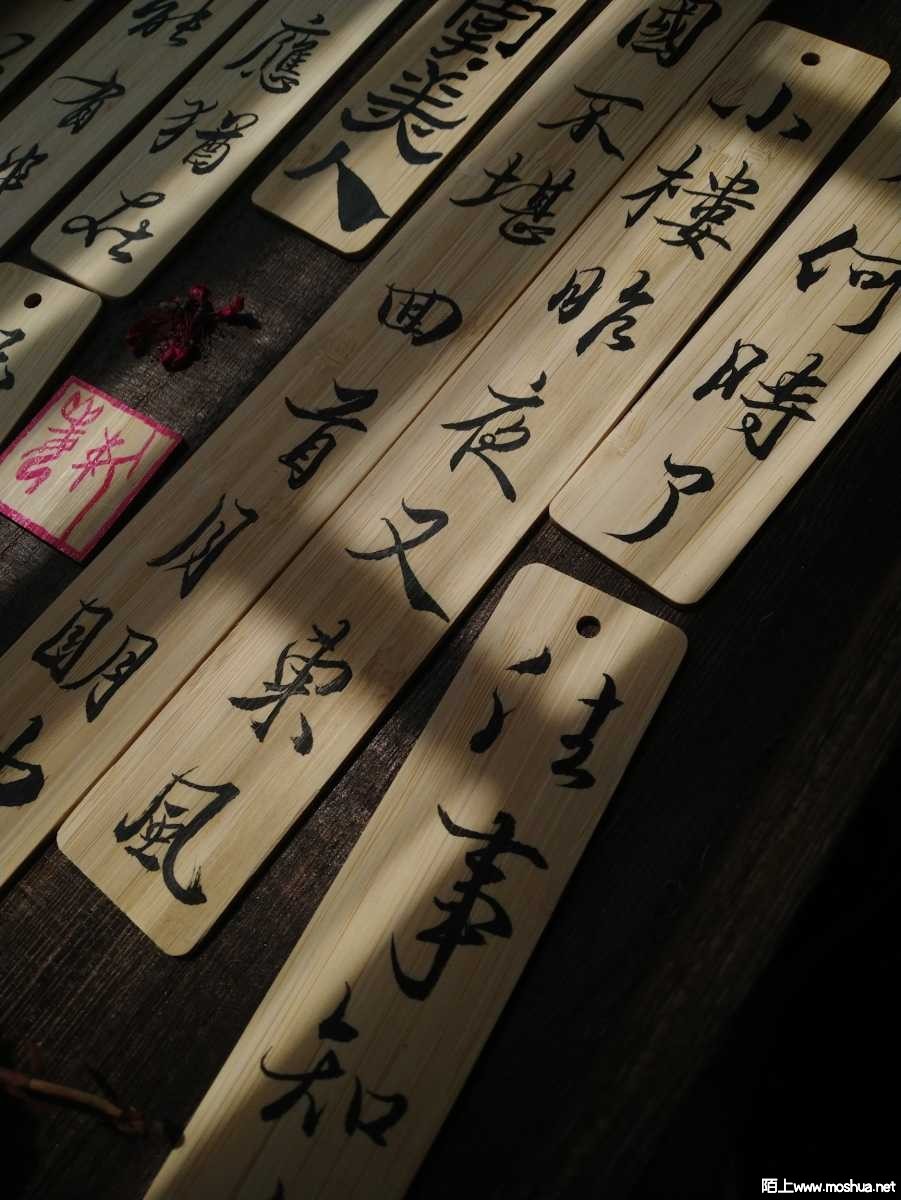 虞美人
何時了
往事知
小樓昨夜又東風
國不堪回首月明中
應猶在
能有幾
陌上www.moshua.net